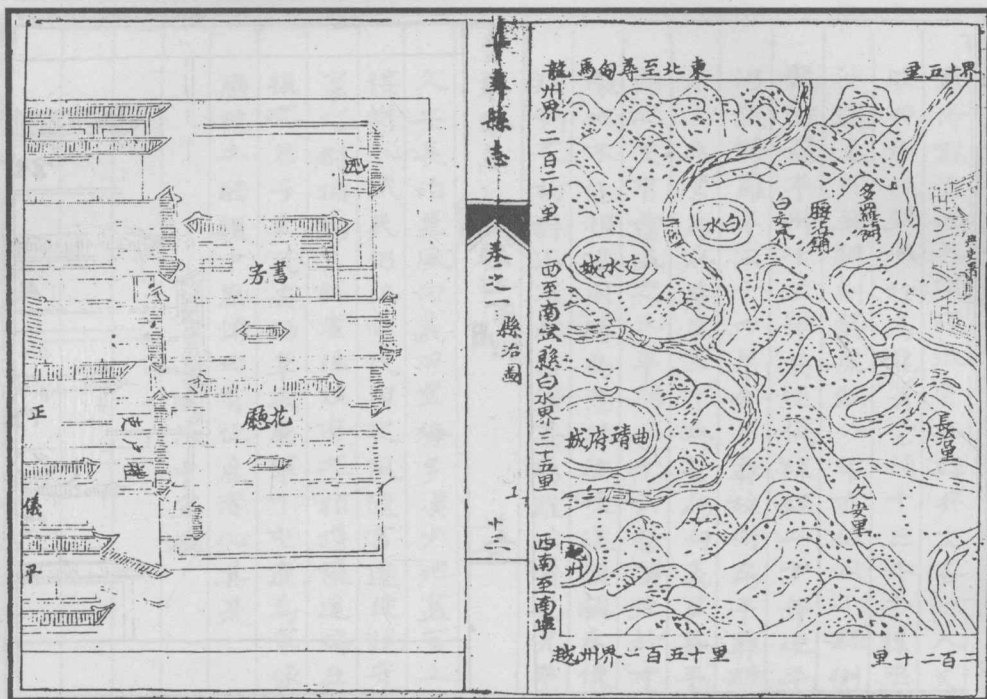 界十五里
東北至尋甸馬龍
州界二百二十里
西至南寧縣白水界三十五里
西南至南寧
越州界一百五十里
二百二十里
多羅鋪
腰站鋪
白水
交水城
曲靖府城
長沿里
久安里
越州
平彝縣志
卷之一
縣治圖
十二
書房
花廳
正
儀
平